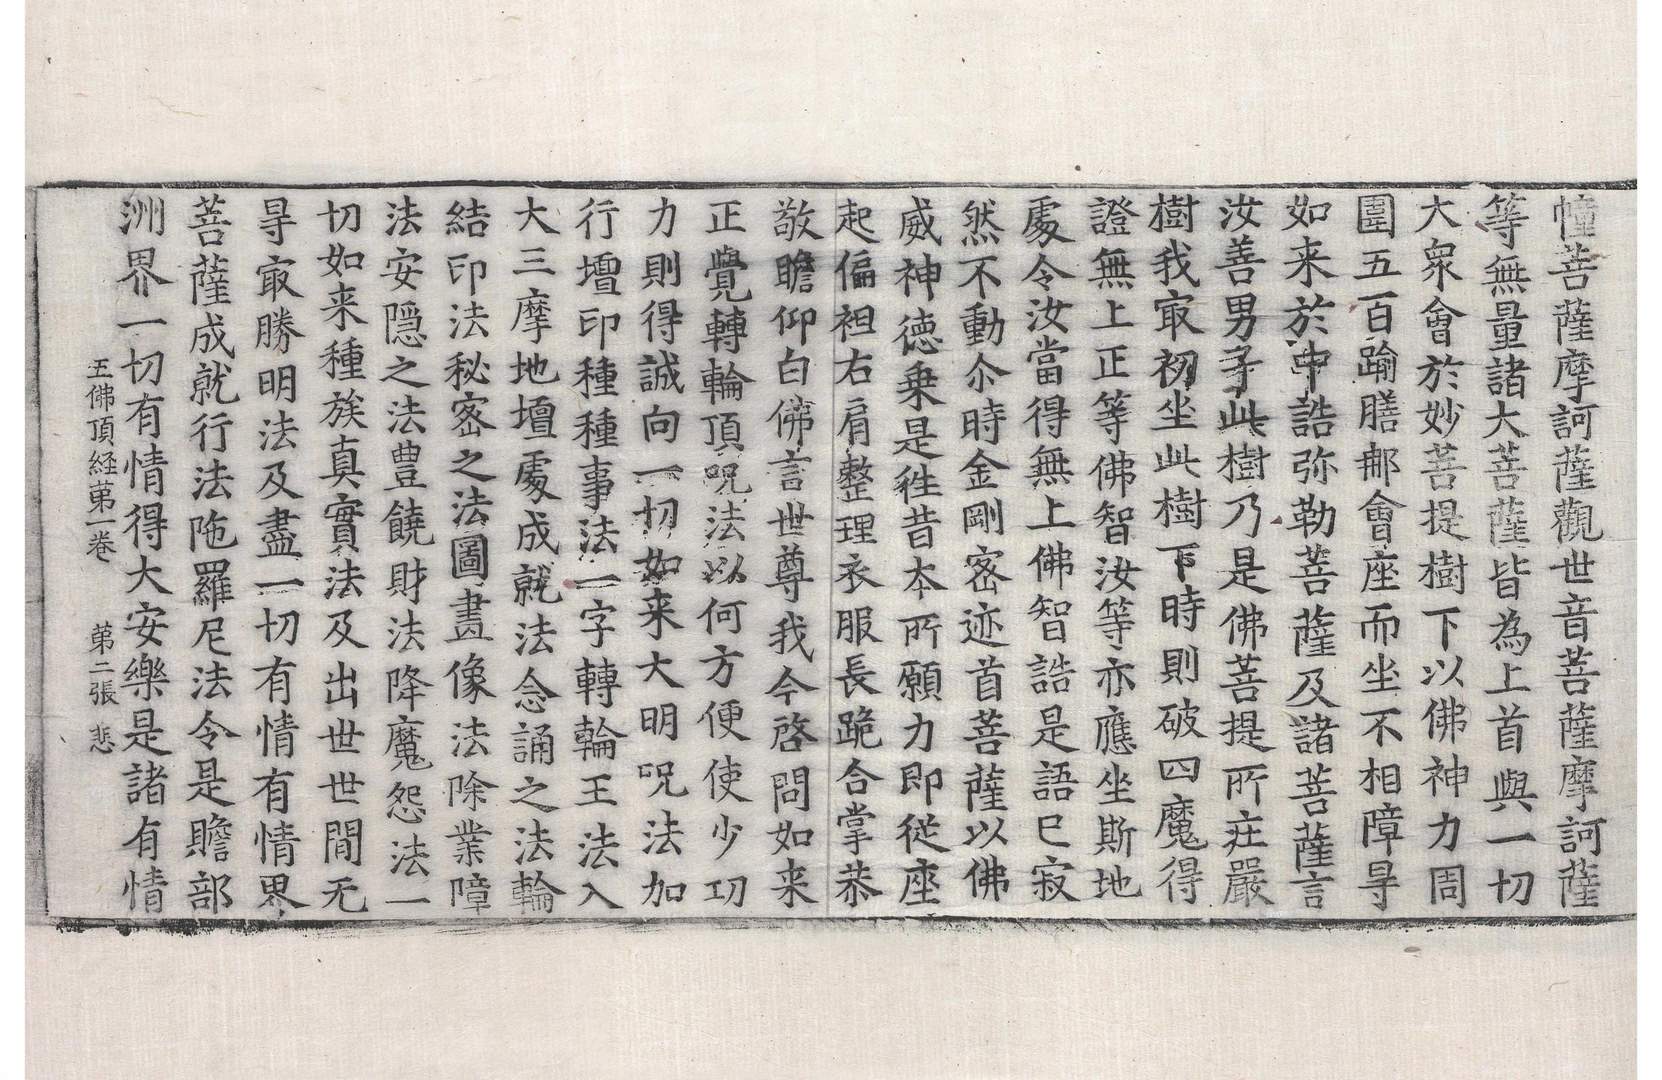 幢菩薩摩訶薩觀世音菩薩摩訶薩
等無量諸大菩薩皆為上首與一切
大眾會於妙菩提樹下以佛神力周
圍五百踰膳那會座而坐不相障㝵
如来於中誥弥勒菩薩及諸菩薩言
汝善男子此樹乃是佛菩提所庄嚴
樹我㝡初坐此樹下時則破四魔得
證無上正等佛智汝等亦應坐斯地
處令汝當得無上佛智誥是語已寂
然不動尒時金剛密迹首菩薩以佛
威神德乗是徃昔本所願力即従座
起偏袒右肩整理衣服長跪合掌恭
敬瞻仰白佛言世尊我今啓問如来
正覺轉輪頂呪法以何方便使少功
力則得誠向一切如来大明呪法加
行壇印種種事法一字轉輪王法入
大三摩地壇處成就法念誦之法輪
結印法秘密之法圖畫像法除業障
法安隠之法豊饒財法降魔怨法一
切如来種族真實法及出世世間无
㝵㝡勝明法及盡一切有情有情界
菩薩成就行法陁羅尼法令是贍部
洲界一切有情得大安樂是諸有情
五佛頂経苐一巻 苐二張 悲